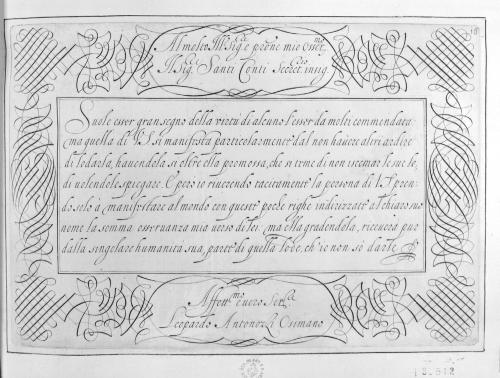 Al molto Ill.re Sig.re e prõne mio osser.mo
Il Sig. Santi Conti Secret.rio insig.
Suole esser gran segno della virtù di alcuno l'esser da molti commendata:
ma quella di V.S. si manifesta particolarmente dal non havere altri ardire
di lodarla, havendola sì oltre ella promossa, che si teme di non iscemar le sue lo,
di volendole spiegare. E però io riverendo tacitamente la persona di V.S. pren
do solo à manifestare al mondo con queste poche righe indirizzate al chiaro suo
nome la somma osservanza mia verso di lei. ma ella gradendola, riceverà pur
dalla singolare humanità sua, parte di quella lode, ch'io non sò darle.
Affett.mo e vero Ser.re
Leopardo Antonozzi Osimano